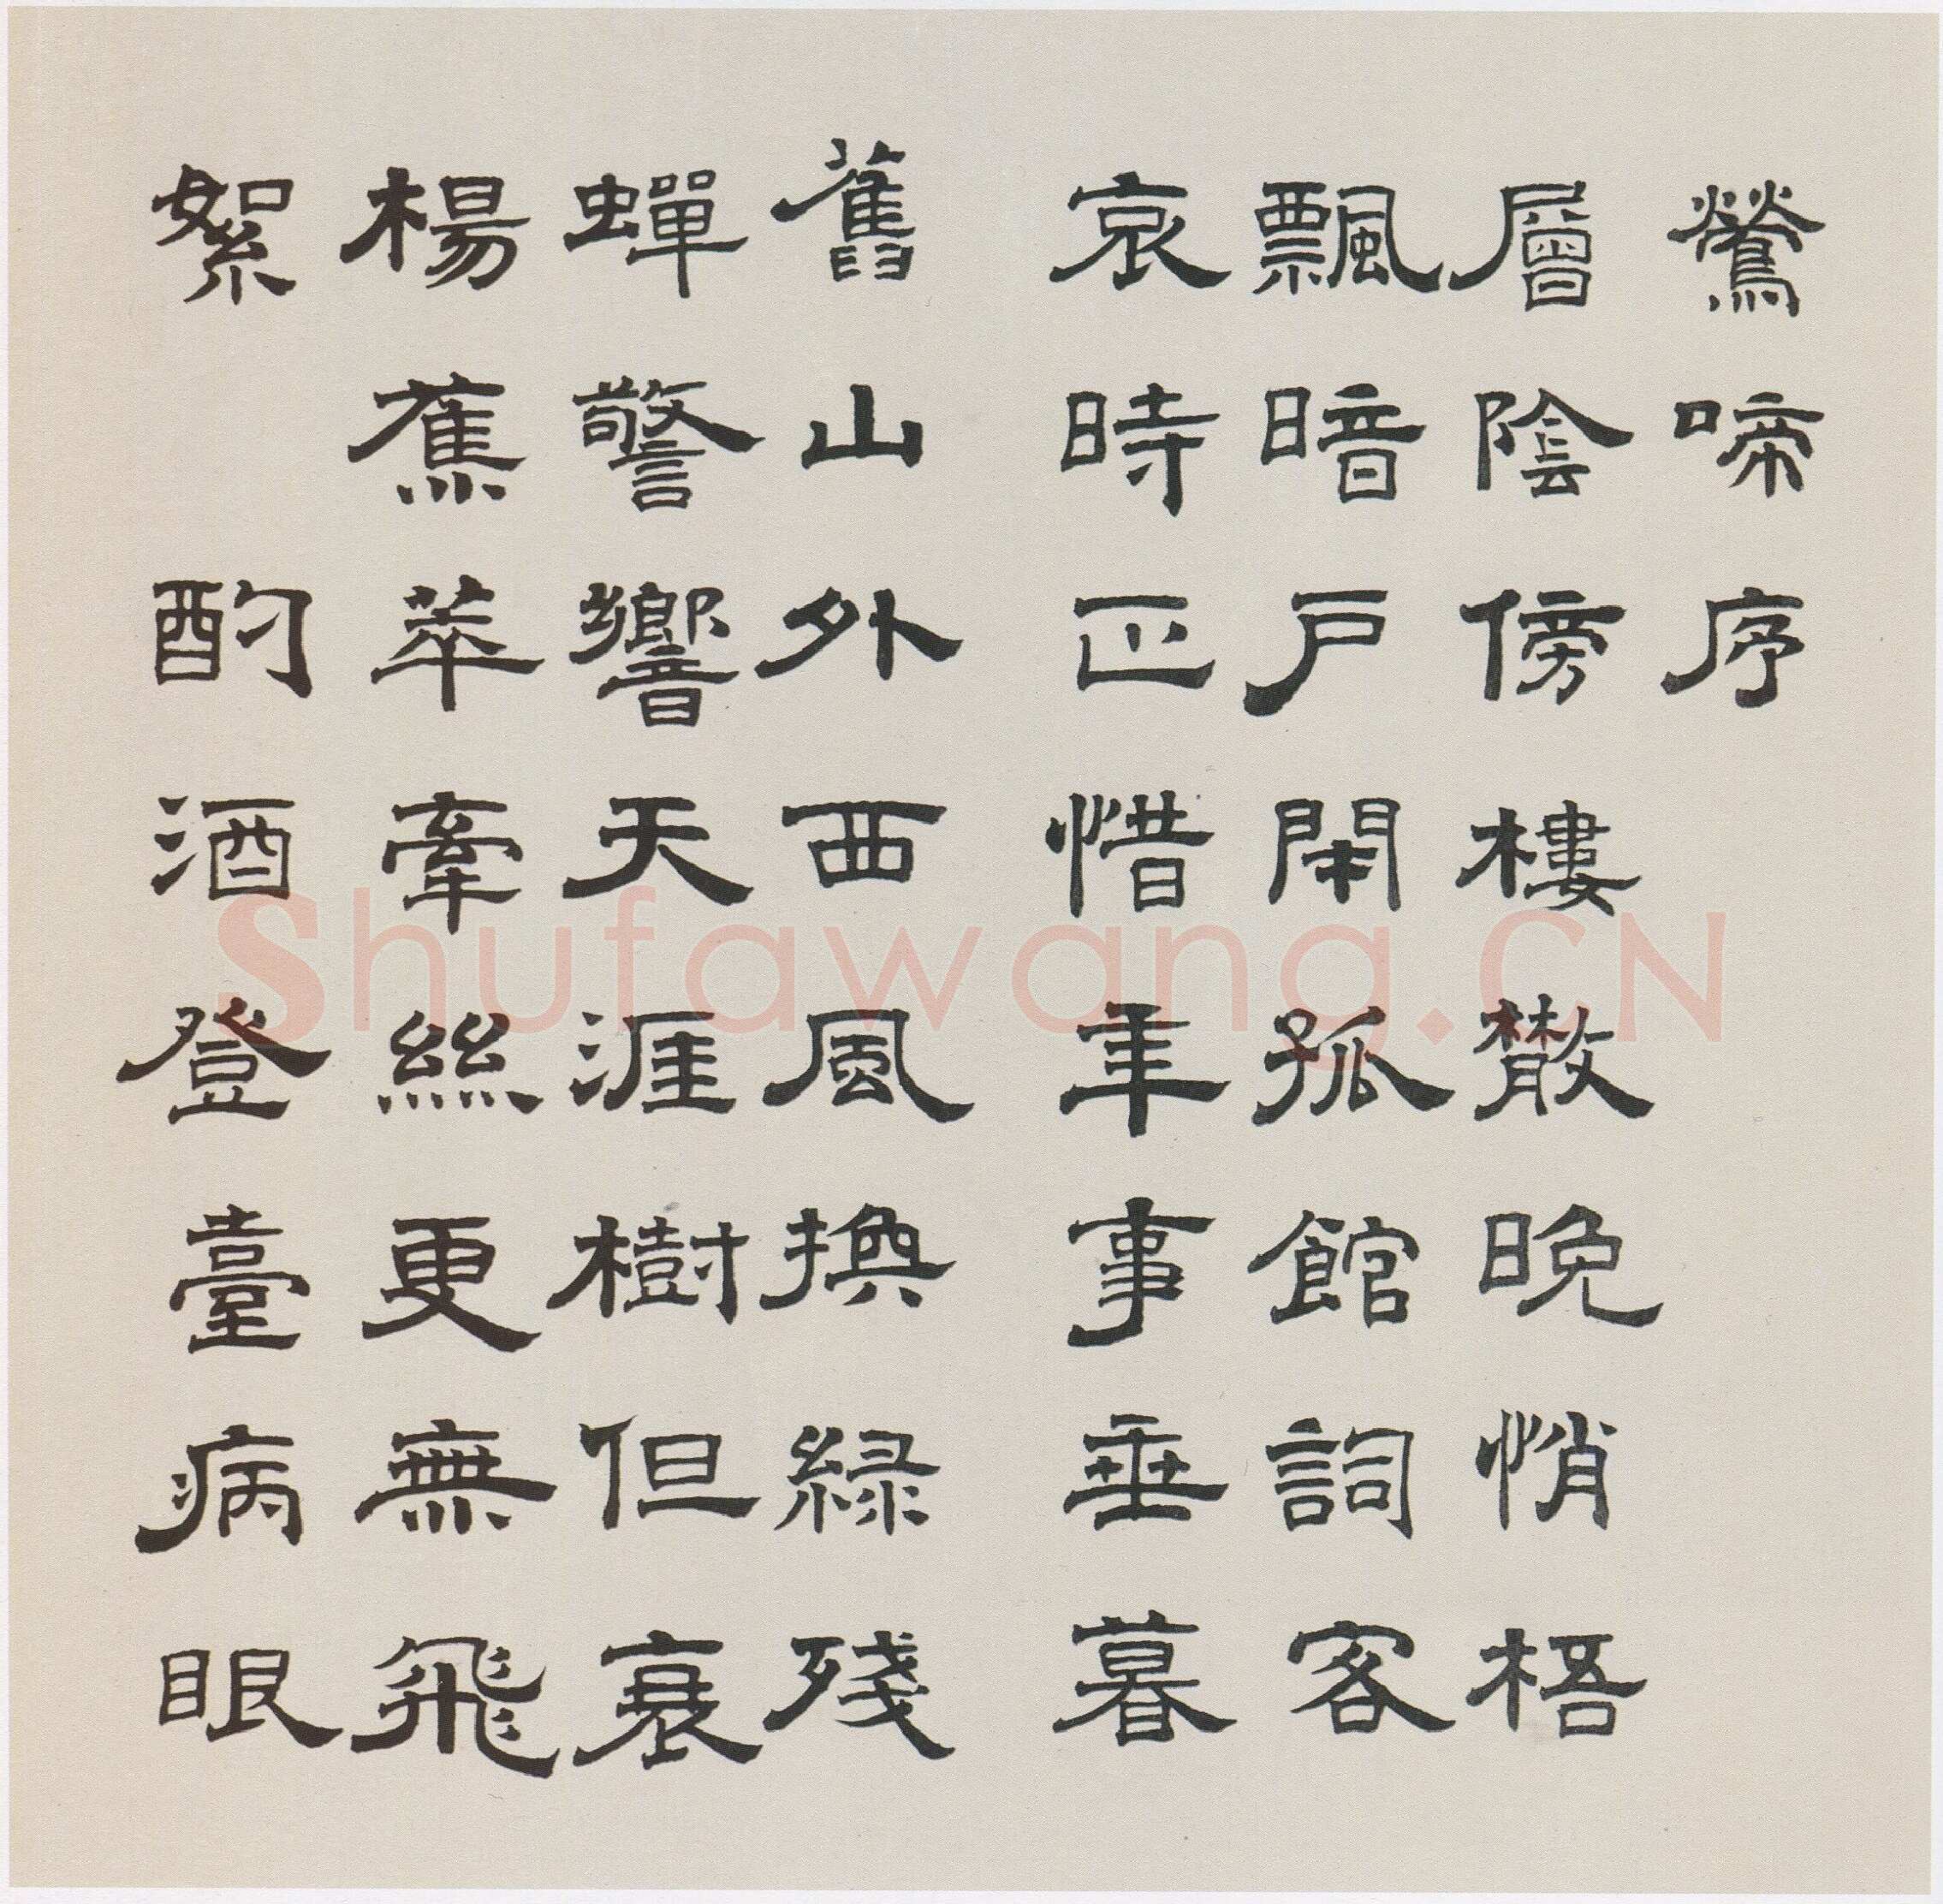 鶯啼序
層陰傍樓散晚悄梧
飄暗戶閑孤館詞客
哀時正惜年事垂暮
舊山外西風換綠殘
蟬警響天涯樹但衰
楊蕉萃牽絲更無飛
絮　酌酒登臺病眼
Shufawang.CN